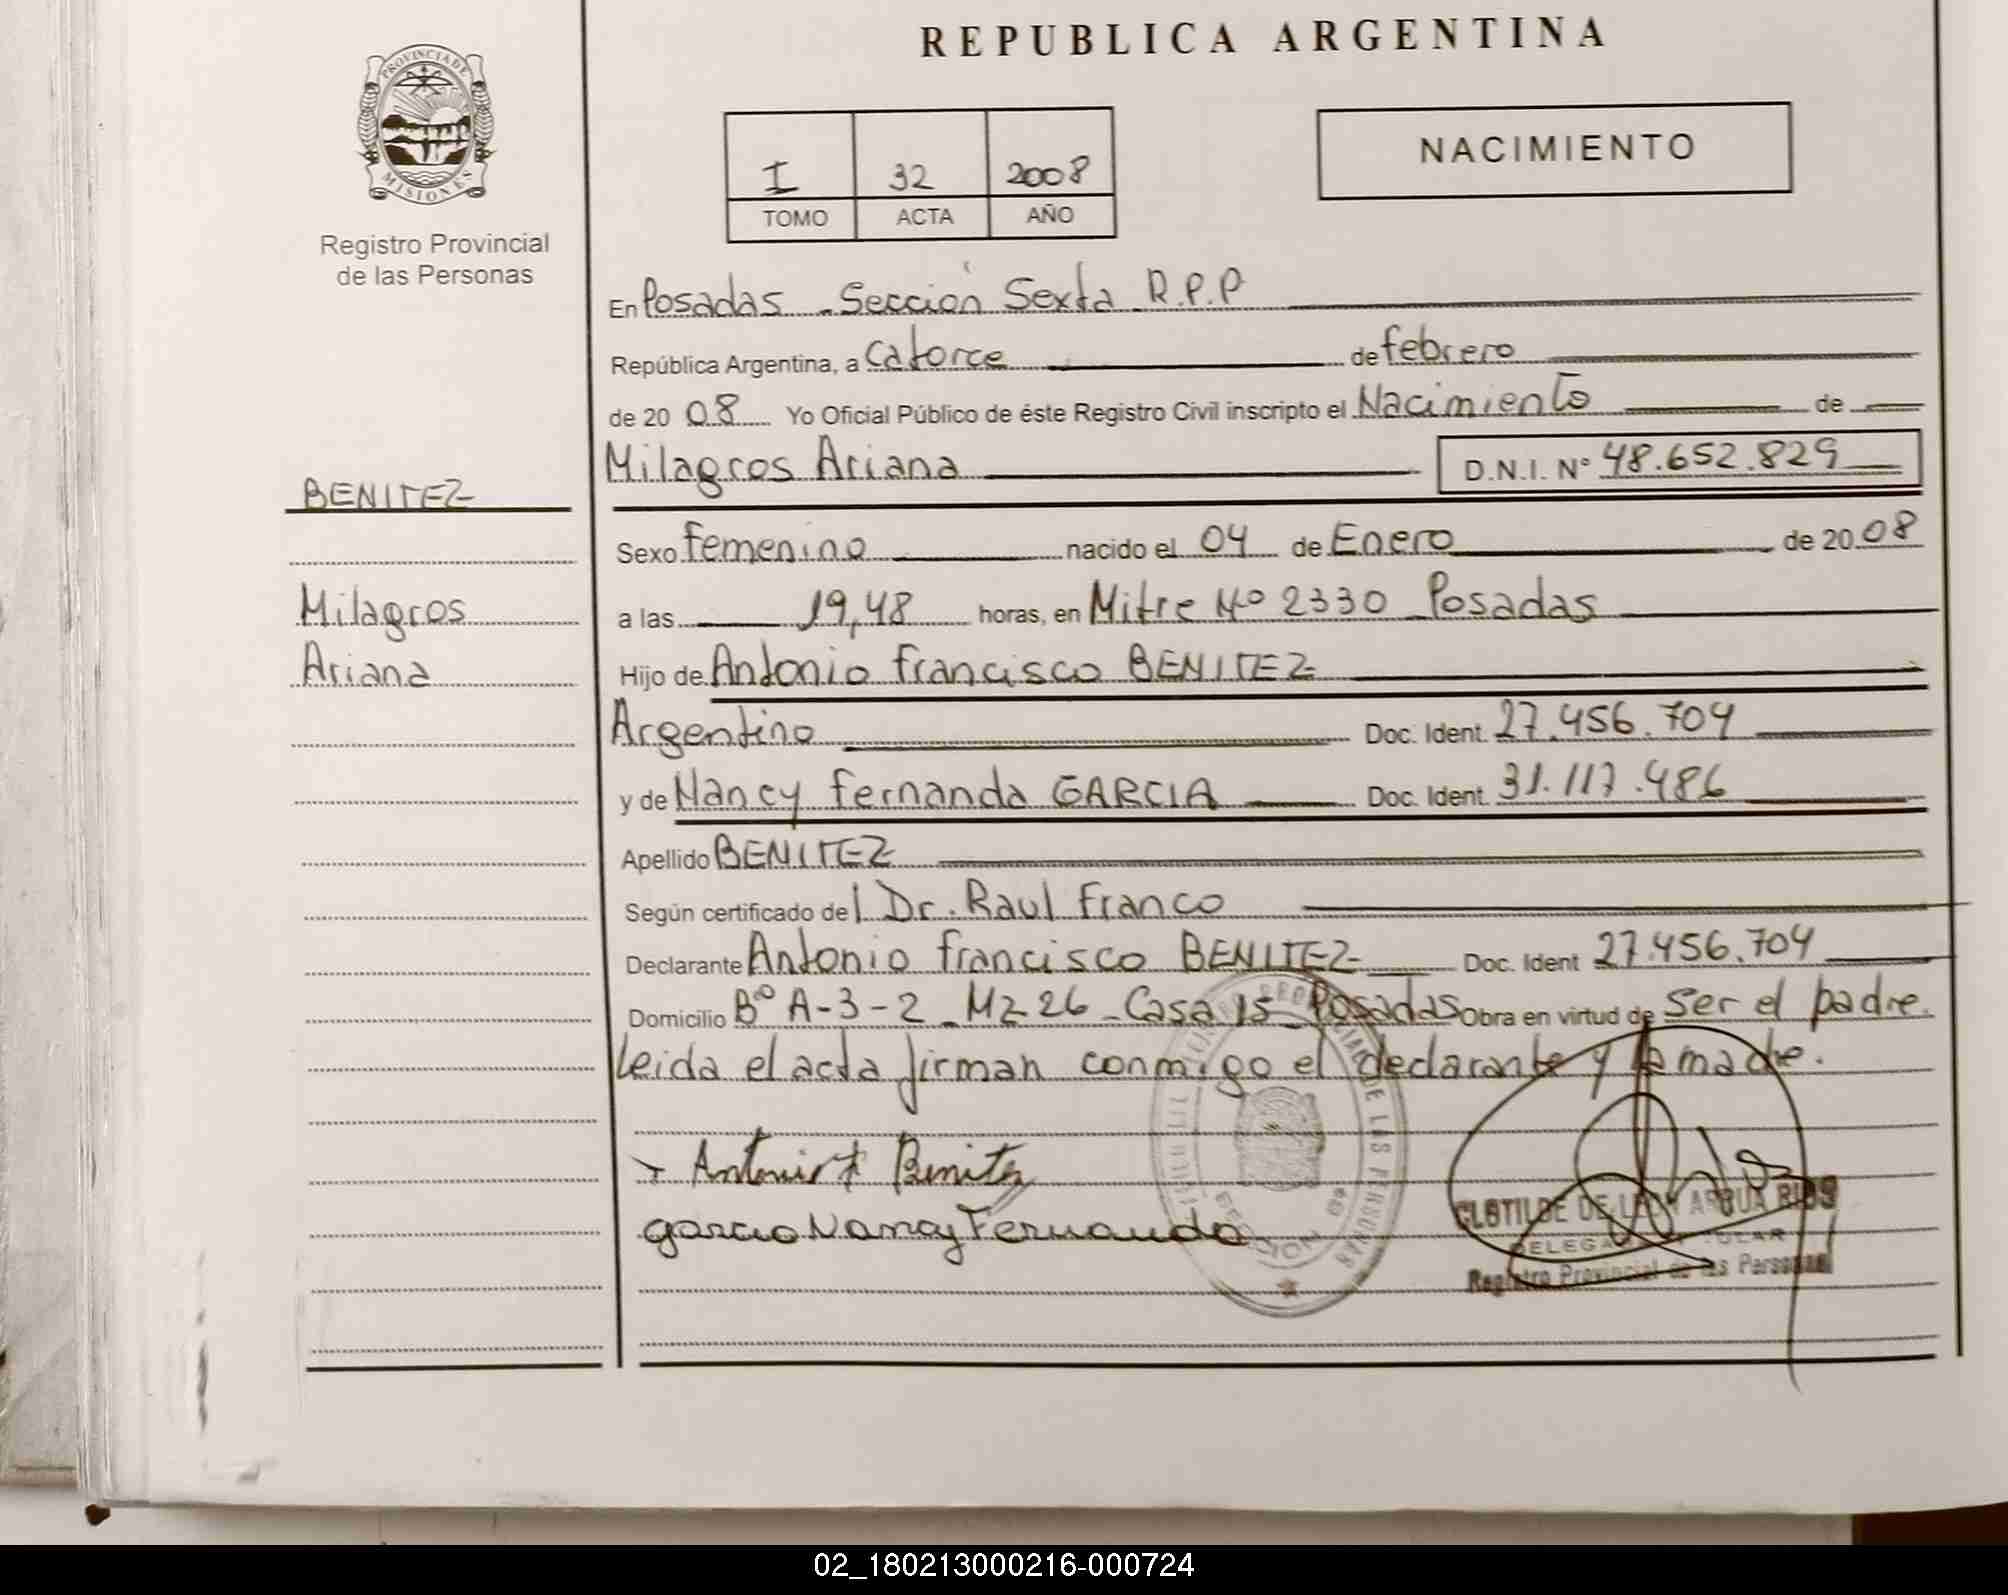 REPUBLICA ARGENTINA
PROVINCIA DE
MISIONES
Registro Provincial
de las Personas
I 32 2008
TOMO ACTA AÑO
NACIMIENTO
En Posadas - Sección Sexta R.P.P
República Argentina, a Catorce de febrero
de 20 08 Yo Oficial Público de éste Registro Civil inscripto el Nacimiento de
Milagros Ariana D.N.I. Nº 48.652.829
BENITEZ
Sexo femenino nacido el 04 de Enero de 20 08
Milagros
a las 19,48 horas, en Mitre Nº 2330 Posadas
Ariana
Hijo de Antonio Francisco BENITEZ
Argentino Doc. Ident. 27.456.704
y de Nancy Fernanda GARCIA Doc. Ident. 31.117.486
Apellido BENITEZ
Según certificado del Dr. Raul Franco
Declarante Antonio Francisco BENITEZ Doc. Ident 27.456.704
Domicilio Bº A-3-2 - Mz 26 - Casa 15 - Posadas Obra en virtud de ser el padre.
Leida el acta firman conmigo el declarante y la madre.
Antonio F Benitez
Garcia Nancy Fernanda
CLOTILDE DE
Registro Provincial de las Personas
02_180213000216-000724